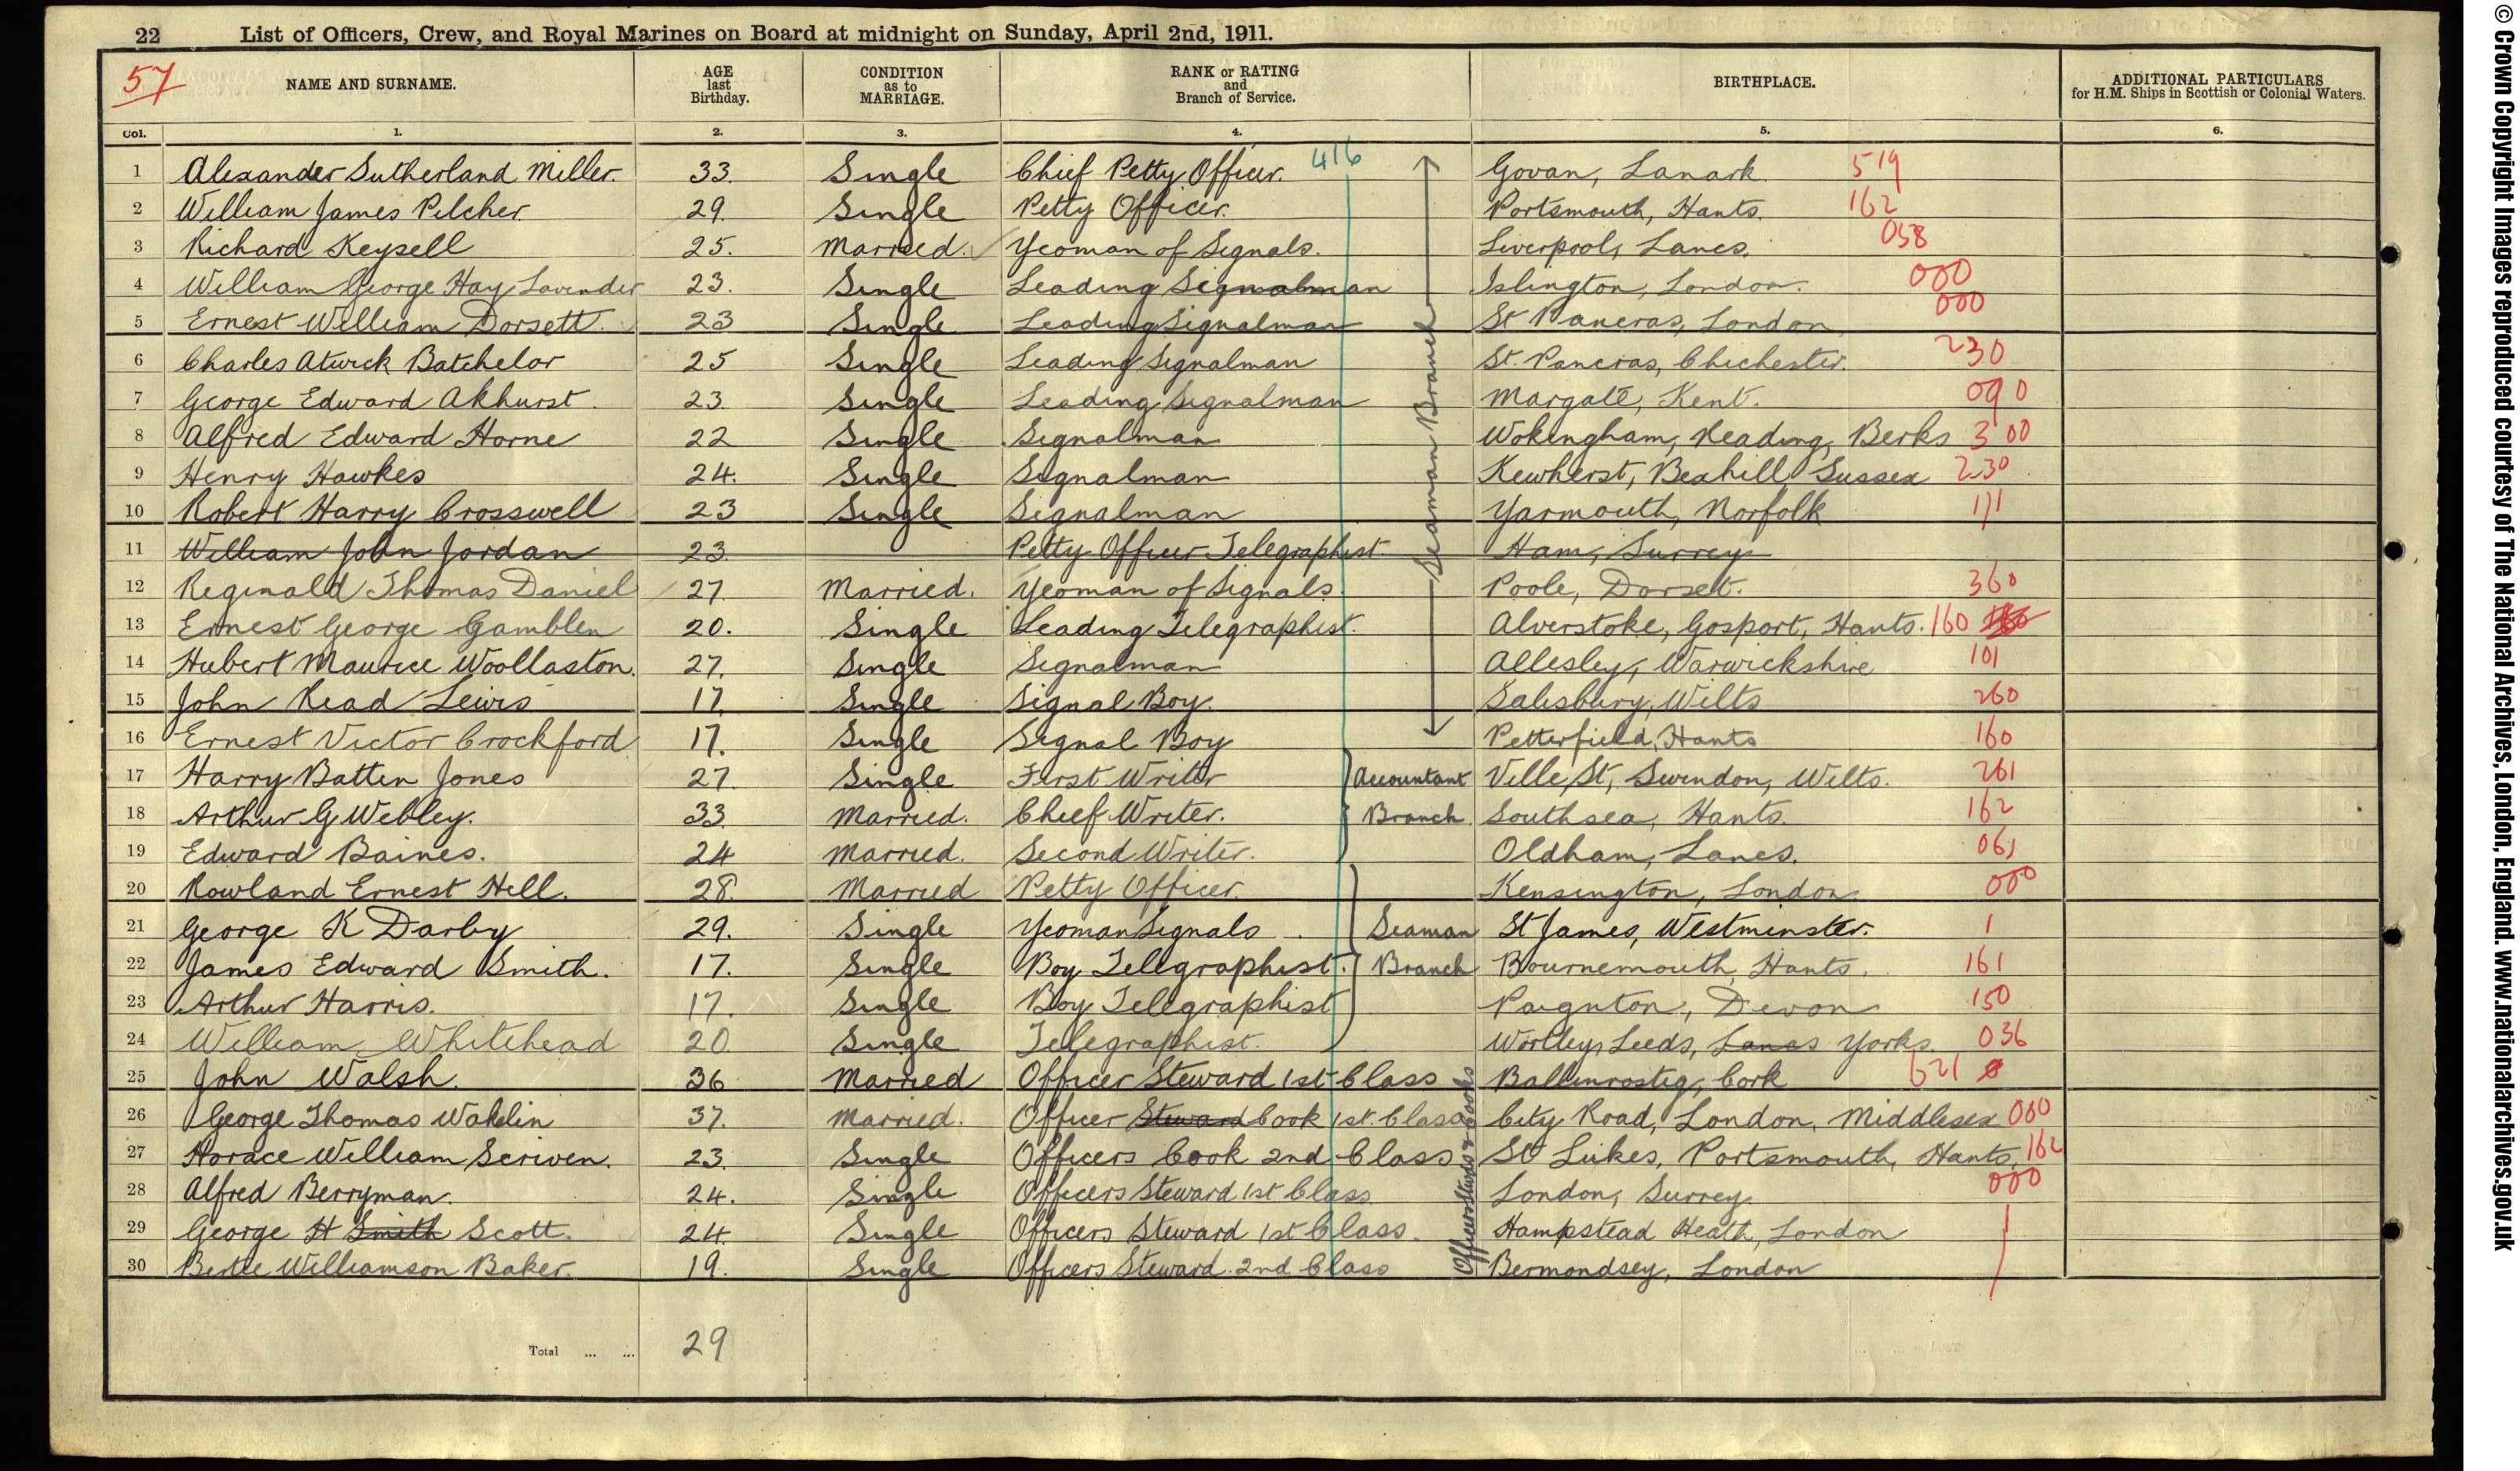 22 List of Officers, Crew, and Royal Marines on Board at midnight on Sunday, April 2nd, 1911.
57 NAME AND SURNAME. AGE last Birthday. CONDITION as to MARRIAGE. RANK or RATING and Branch of Service. BIRTHPLACE. ADDITIONAL PARTICULARS for H.M. Ships in Scottish or Colonial Waters.
Col. 1. 2. 3. 4. 5. 6.
1 Alexander Sutherland Miller. 33. Single Chief Petty Officer. 416 Govan, Lanark 519
2 William James Pilcher. 29. Single Petty Officer. Portsmouth, Hants. 162
3 Richard Keysell 25. Married. Yeoman of Signals. Liverpool, Lancs. 058
4 William George Hay Lavender 23. Single Leading Signalman Islington, London. 000
5 Ernest William Dorsett. 23 Single Leading Signalman St Pancras, London 000
6 Charles Atwick Batchelor 25 Single Leading Signalman St. Pancras, Chichester. 230
7 George Edward Akhurst. 23 Single Leading Signalman Margate, Kent. 090
8 Alfred Edward Horne 22 Single Signalman Wokingham, Reading, Berks 300
9 Henry Hawkes 24. Single Signalman Kewherst, Bexhill Sussex 230
10 Robert Harry Crosswell 23 Single Signalman Yarmouth, Norfolk 111
11 William John Jordan 23 Petty Officer Telegraphist Ham, Surrey
Seaman Branch
12 Reginald Thomas Daniel 27. Married. Yeoman of Signals. Poole, Dorset. 360
13 Ernest George Gamblen 20. Single Leading Telegraphist. Alverstoke, Gosport, Hants. 160
14 Hubert Maurice Woollaston. 27. Single Signalman Allesley, Warwickshire 101
15 John Read Lewis 17. Single Signal Boy. Salisbury, Wilts 260
16 Ernest Victor Crockford 17. Single Signal Boy Petterfield, Hants 160
17 Harry Batten Jones 27 Single First Writer Accountant Ville St, Swindon, Wilts. 261
18 Arthur G Webley. 33 Married. Chief Writer. Branch Southsea, Hants. 162
19 Edward Baines. 24 Married. Second Writer. Oldham, Lancs. 061
20 Rowland Ernest Hill. 28. Married Petty Officer. Kensington, London 000
21 George K Darby 29. Single Yeoman Signals Seaman St James, Westminster. 1
22 James Edward Smith. 17. Single Boy Telegraphist. Branch Bournemouth, Hants. 161
23 Arthur Harris. 17. Single Boy Telegraphist Paignton, Devon 150
24 William Whitehead 20 Single Telegraphist. Wortley, Leeds, Lancs Yorks. 036
25 John Walsh. 36 Married Officer Steward 1st Class Ballinrostig, Cork 621
26 George Thomas Wakelin 37. Married. Officer Steward Cook 1st Class City Road, London, Middlesex 000
27 Horace William Scriven. 23. Single Officers Cook 2nd Class St Lukes, Portsmouth, Hants. 162
28 Alfred Berryman. 24. Single Officers Steward 1st Class London, Surrey 000
29 George H Smith Scott. 24. Single Officers Steward 1st Class. Hampstead Heath, London
30 Bertie Williamson Baker. 19. Single Officers Steward 2nd Class Bermondsey, London
Officers Stwds & Cooks
Total ... ... 29
© Crown Copyright Images reproduced courtesy of The National Archives, London, England. www.nationalarchives.gov.uk